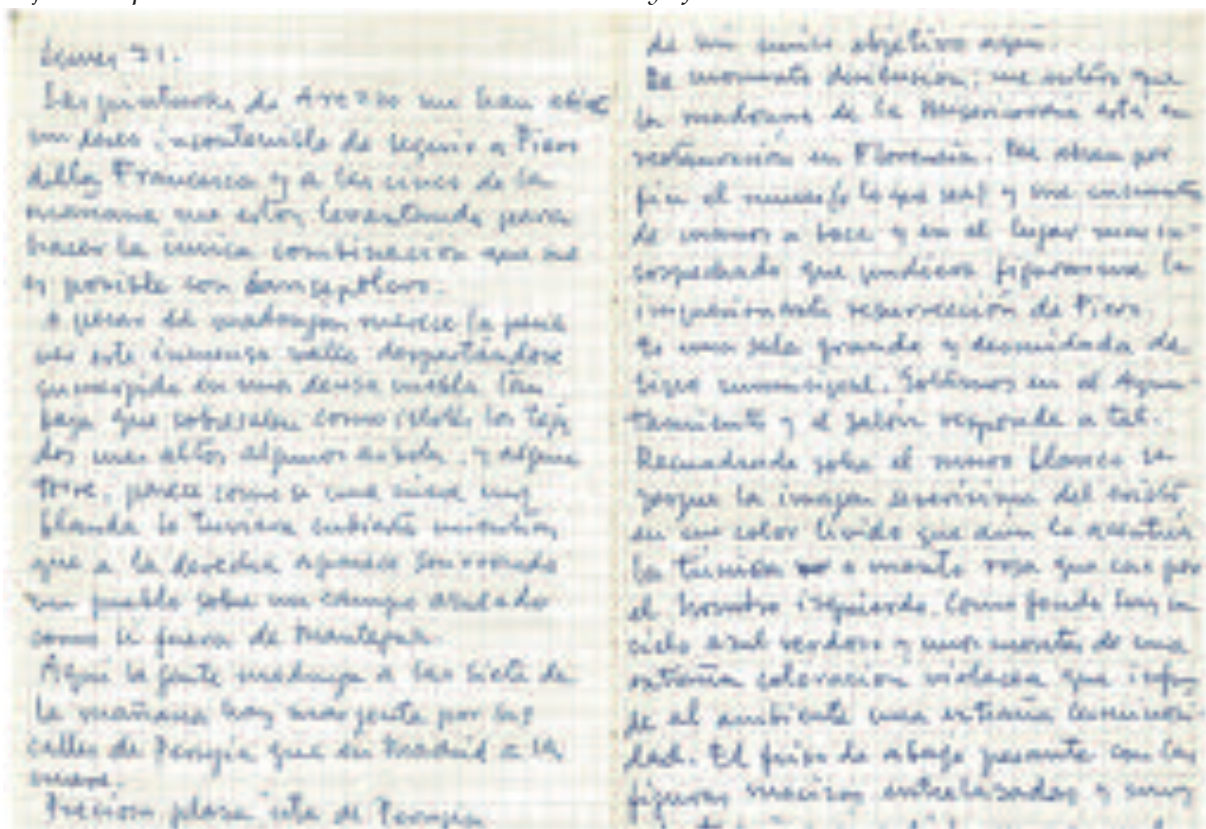 Lunes 21.
Las pinturas de Arezzo me han abier
un deseo incontenible de seguir a Piero
della Francesca y a las cinco de la
mañana me estoy levantando para
hacer la única combinación que me
es posible con Sansepolcro.
A pesar del madrugón merece la pena
ver este inmenso valle despertándose
sumergido en una densa niebla tan
baja que sobresalen como islotes los teja
dos mas altos algunos arboles y alguna
torre, parece como si una nieve muy
blanda lo tuviera cubierto mientras
que a la derecha aparece sonrosado
un pueblo sobre un campo azulado
como si fuera de Mantegna.
Aqui la gente madruga a las siete de
la mañana hay mas gente por las
calles de Perugia que en Madrid a las
nueve.
Preciosa plaza esta de Perugia
de mi unico objetivo aqui.
De momento desilusion: me
la madonna de la Misericordia está en
restauración en Florencia. Me abren por
fin el museo (o lo que sea) y me encuentro
de manos a boca y en el lugar mas in-
sospechado que pudiera figurarme la
impresionante resurrección de Piero.
Es una sala grande y desnudada de
tipo municipal. Estamos en el Ayun-
tamiento y el salón responde a tal.
Recuadrada sobre el muro blanco se
yergue la imagen severisima del cristo
en un color lívido que aun lo acentua
la túnica o manto rosa que cae por
el hombro izquierdo. Como fondo hay un
cielo azul verdoso y unos montes de una
extraña coloracion violacea que infun
de al ambiente una extraña luminosi-
dad. El friso de abajo pesante con las
figuras macizas entrelazadas y muy